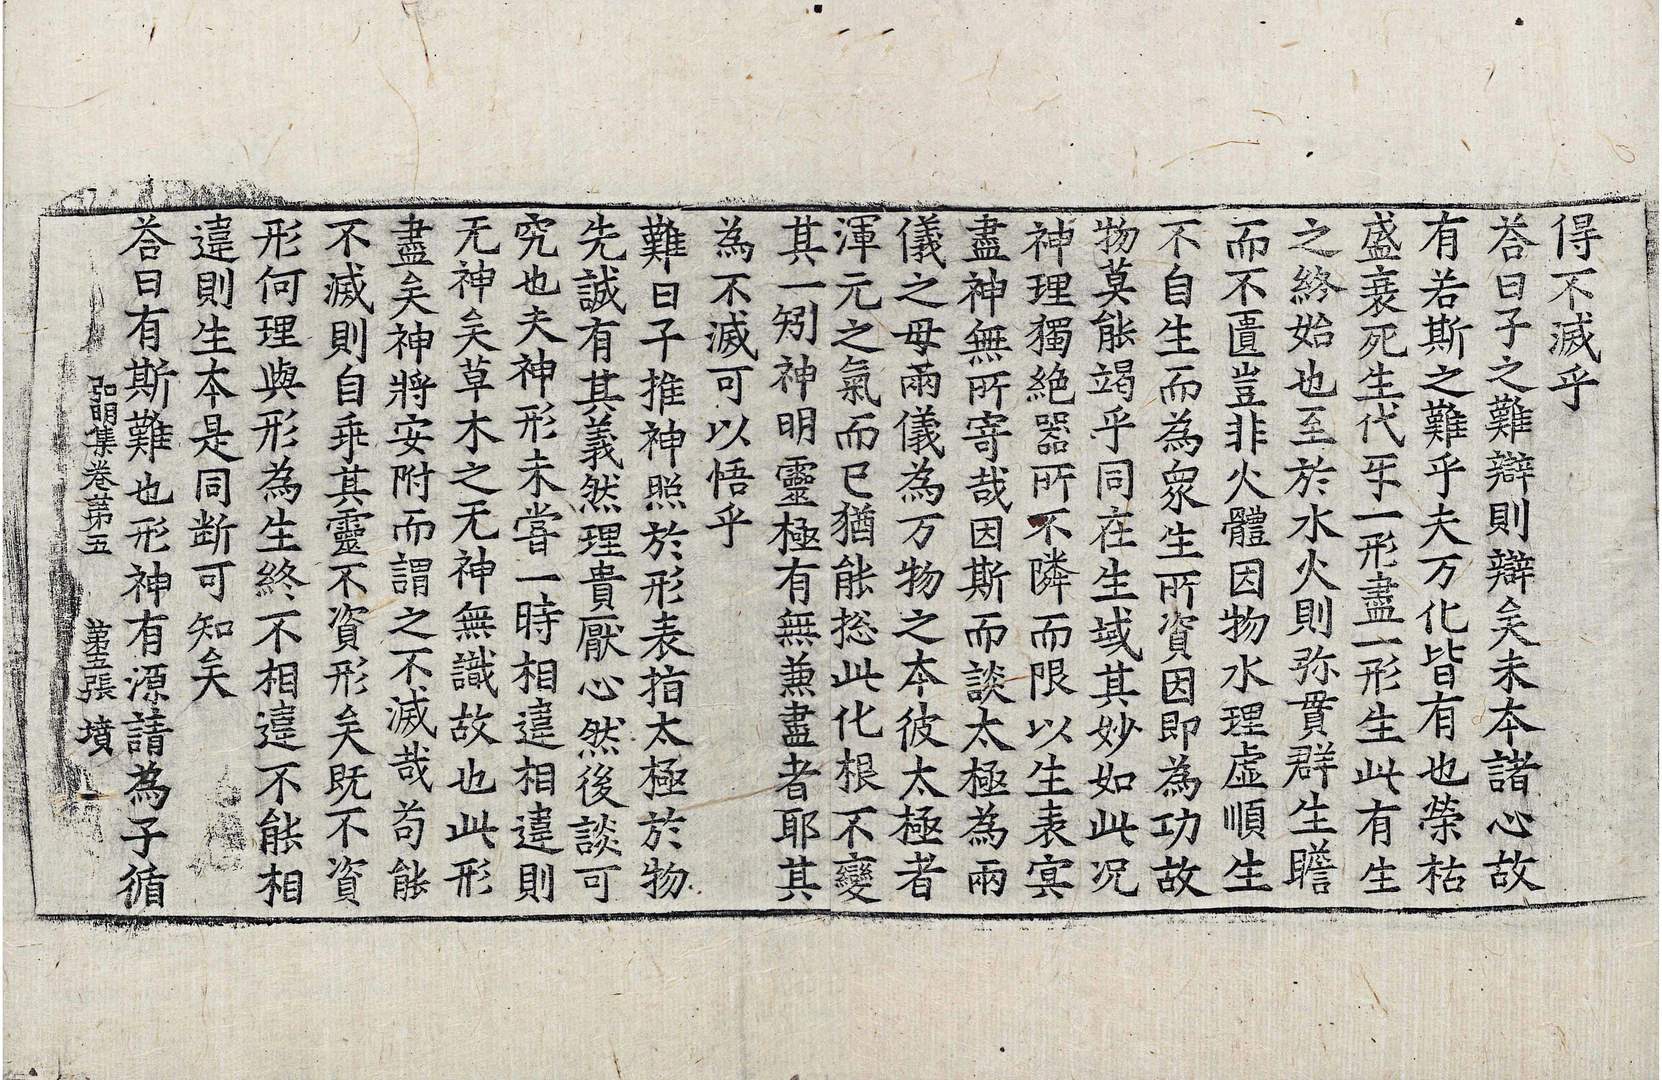 得不滅乎
荅曰子之難辯則辯矣未本諸心故
有若斯之難乎夫万化皆有也榮枯
盛衰死生代牙一形盡一形生此有生
之終始也至於水火則弥貫群生瞻
而不匱豈非火體因物水理虛順生
不自生而為衆生所資因即為功故
物莫能竭乎同在生域其妙如此况
神理獨絶器所不隣而限以生表冥
盡神無所寄哉因斯而談太極為兩
儀之母兩儀為万物之本彼太極者
渾元之氣而已猶能捴此化根不變
其一矧神明靈極有無兼盡者耶其
為不滅可以悟乎
難曰子推神照於形表指太極於物
先誠有其義然理貴厭心然後談可
究也夫神形未嘗一時相違相違則
无神矣草木之无神無識故也此形
盡矣神將安附而謂之不滅哉苟能
不滅則自乖其靈不資形矣既不資
形何理與形為生終不相違不能相
違則生本是同断可知矣
荅曰有斯難也形神有源請為子循
弘明集卷第五 第五張 墳